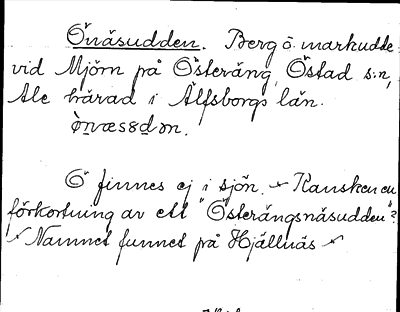 Önäsudden. Berg o. markudde
vid Mjörn på Österäng, Östad s:n,
Ale härad i Älfsborgs län.
Ö finnes ej i sjön. Kansken en
förkortning av ett "Österängsnäsudden"?
Namnet funnet på Hjällnäs